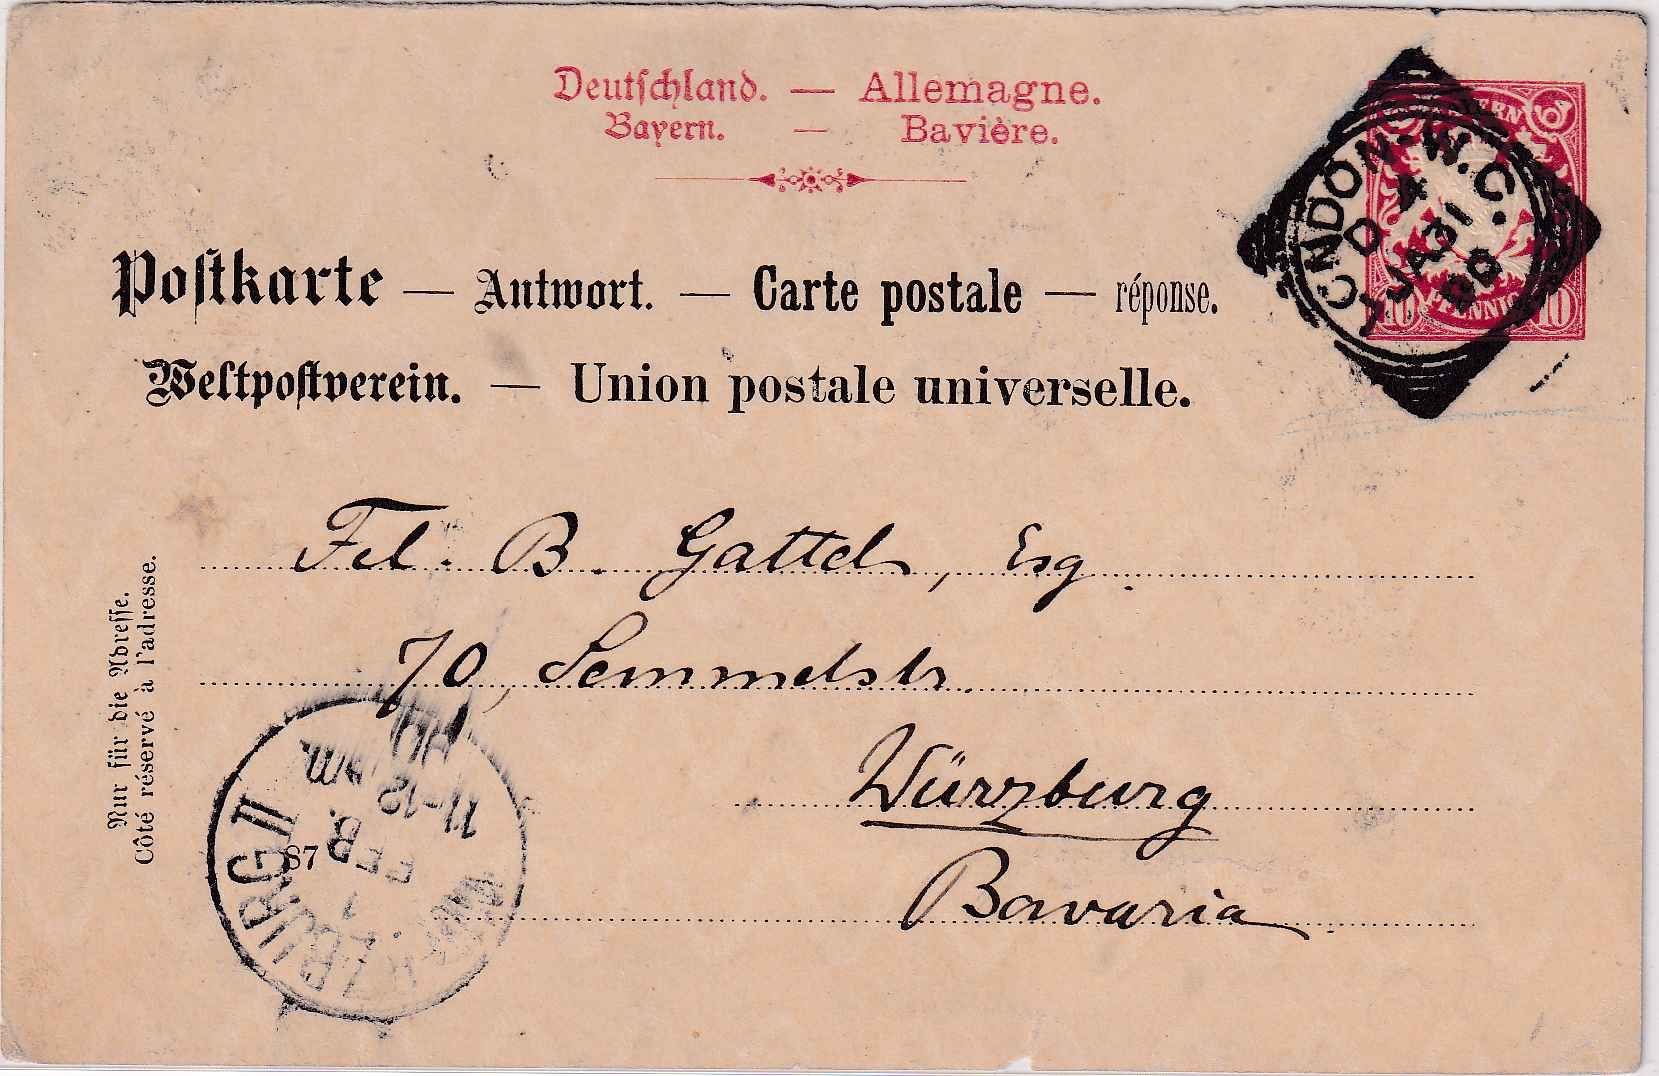 Deutschland. — Allemagne.
Bayern. — Bavière.
Postkarte — Antwort. — Carte postale — réponse.
Weltpostverein. — Union postale universelle.
BAYERN
10 PFENNIG 10
LONDON·W.C.
D 4
JA 31
Fel. B. Gattel, Esq.
70, Semmelstr.
Würzburg
Bavaria
Nur für die Adresse.
Côté réservé à l'adresse.
87
WÜRZBURG II
1
FEB.
11-12
Vm.